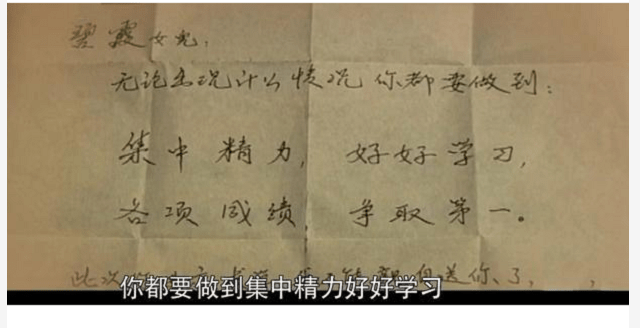 碧霞女儿:
无论出现什么情况你都要做到:
集中精力,好好学习,
各项成绩,争取第一。
此次
亲自送你了,
你都要做到集中精力好好学习